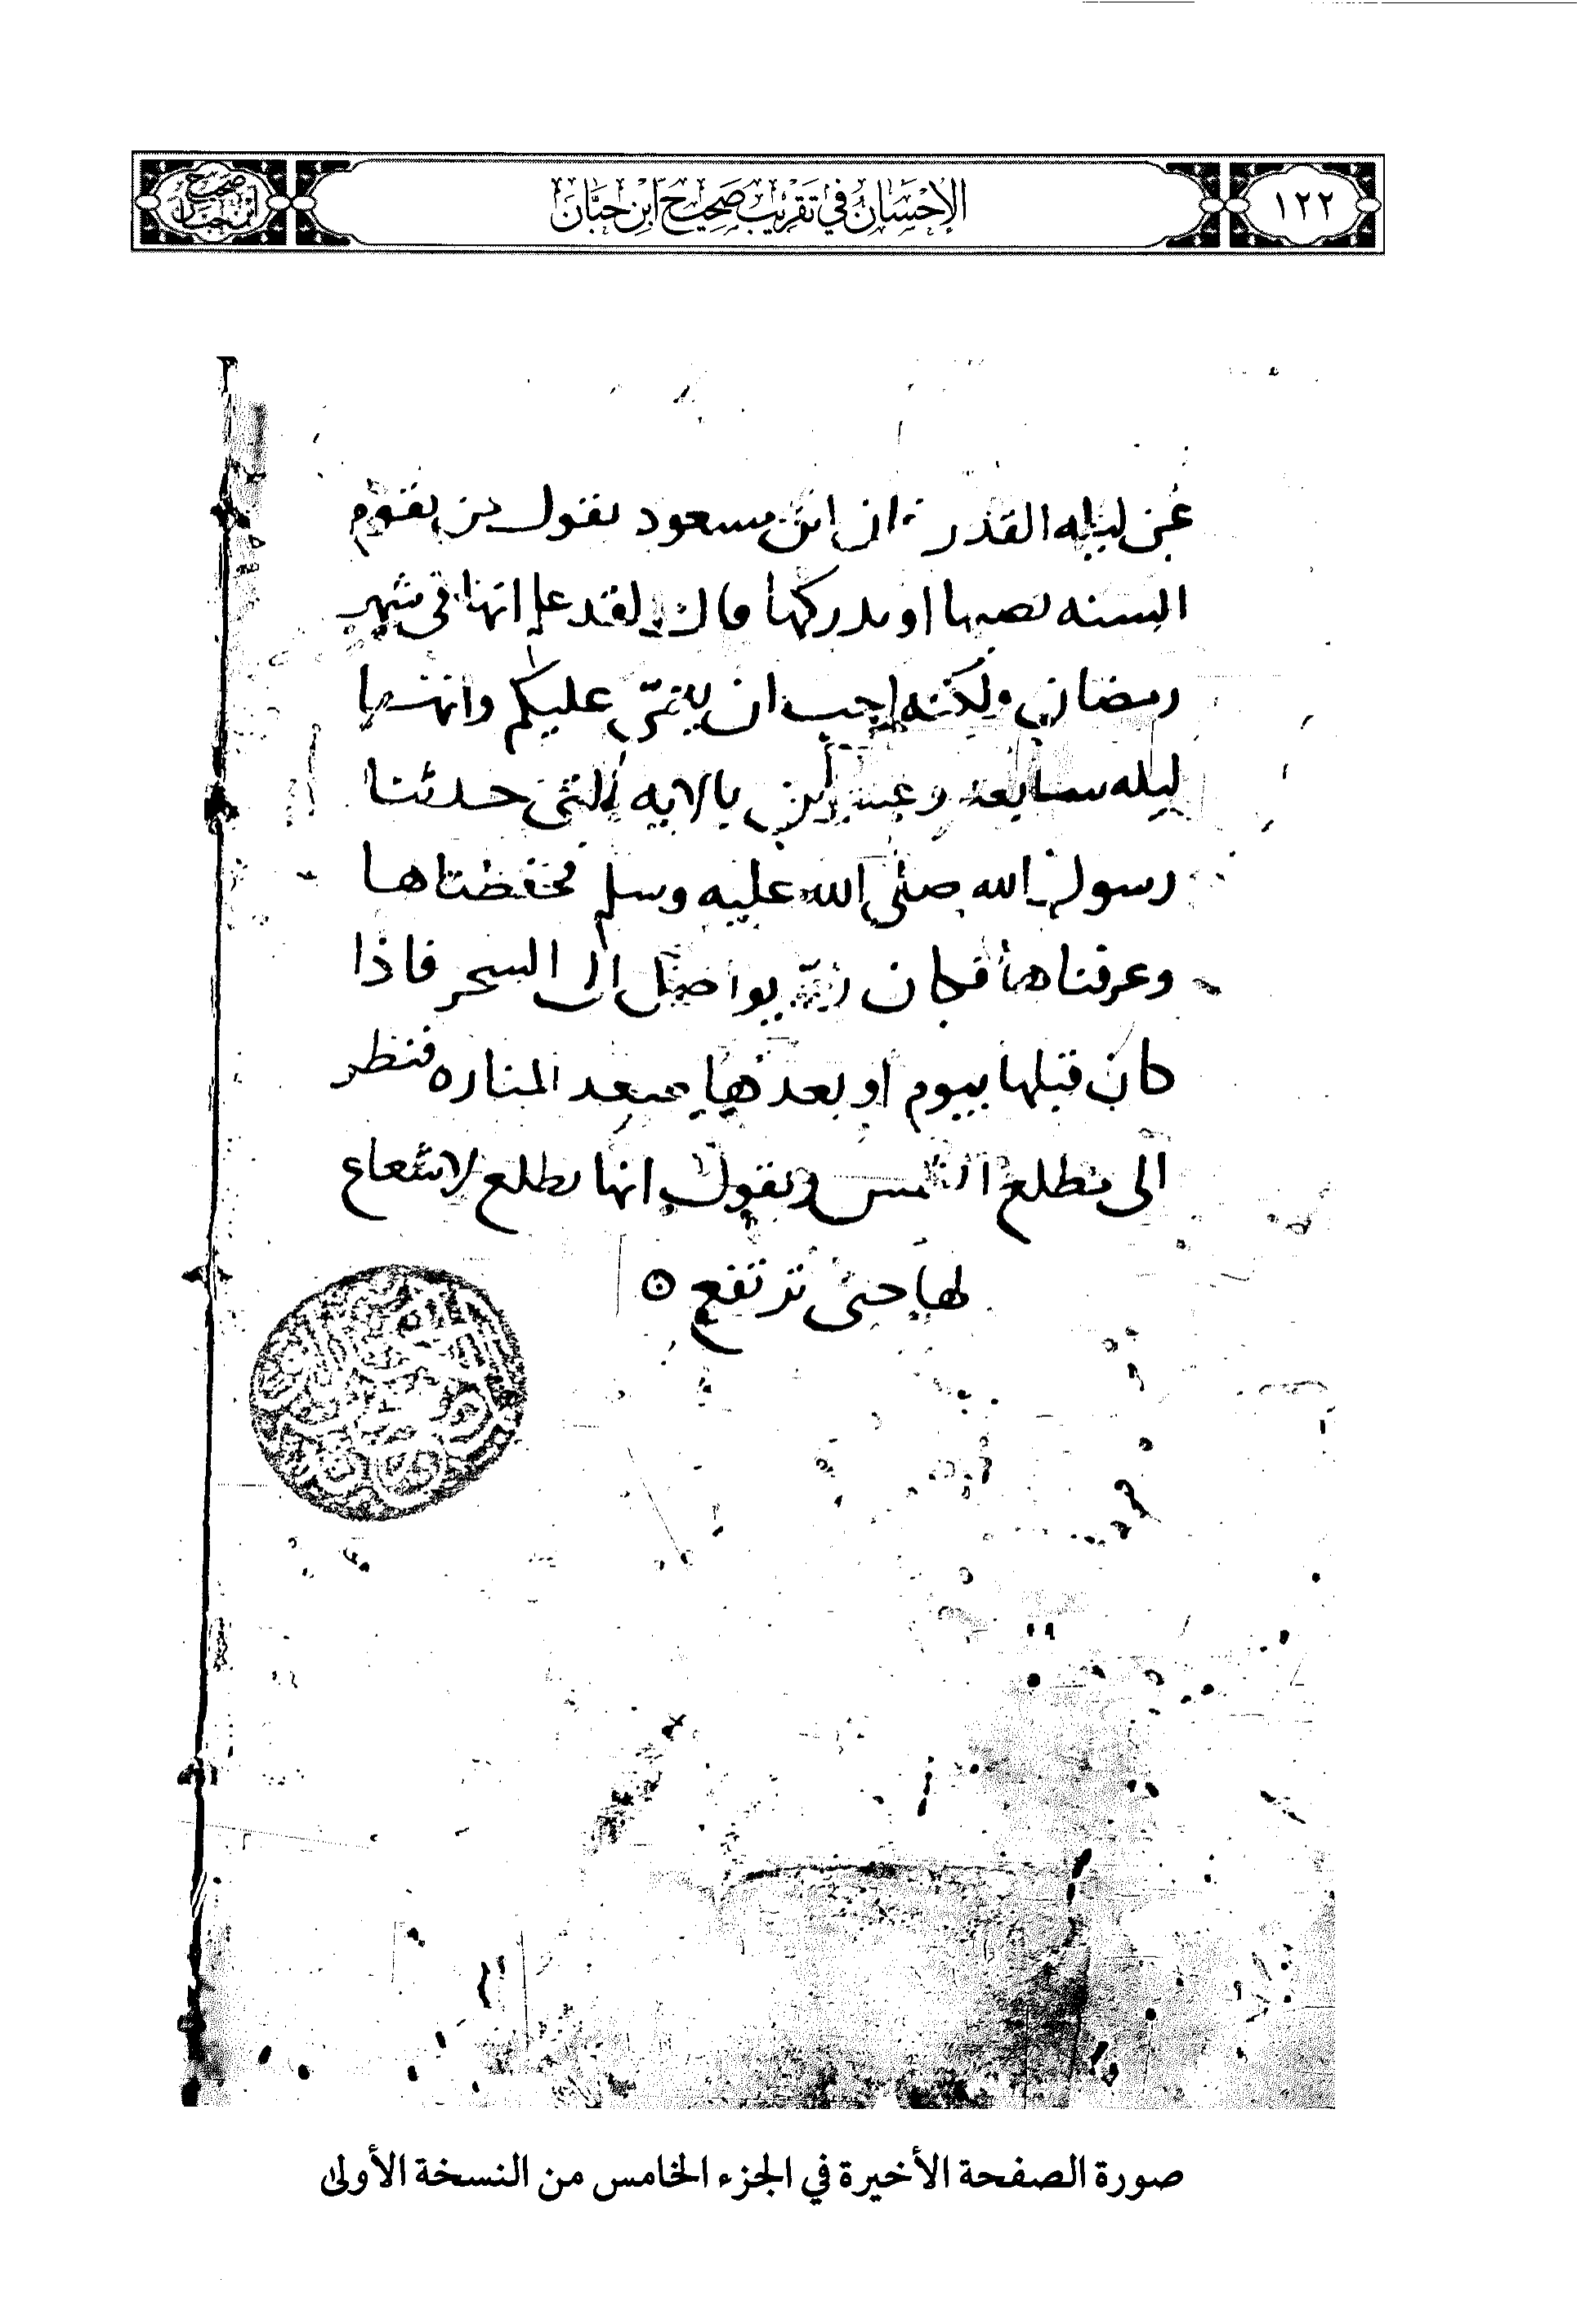 ١٢٢
الإحسان في تقريب صحيح ابن حبان
صحيح ابن حبان
عن ليله القدر فان ابن مسعود يقول من يقوم
السنه يصبها او يدركها قال لقد علم انها في شهر
رمضان ولكنه احب ان يعمي عليكم وانها
ليله سابعه وعشرين بالايه التي حدثنا
رسول الله صلى الله عليه وسلم فحفظناها
وعرفناها فكان زر يواصل الى السحر فاذا
كان قبلها بيوم او بعدها صعد المناره فنظر
الى مطلع الشمس ويقول انها تطلع لا شعاع
لها حتى ترتفع
صورة الصفحة الأخيرة في الجزء الخامس من النسخة الأولى